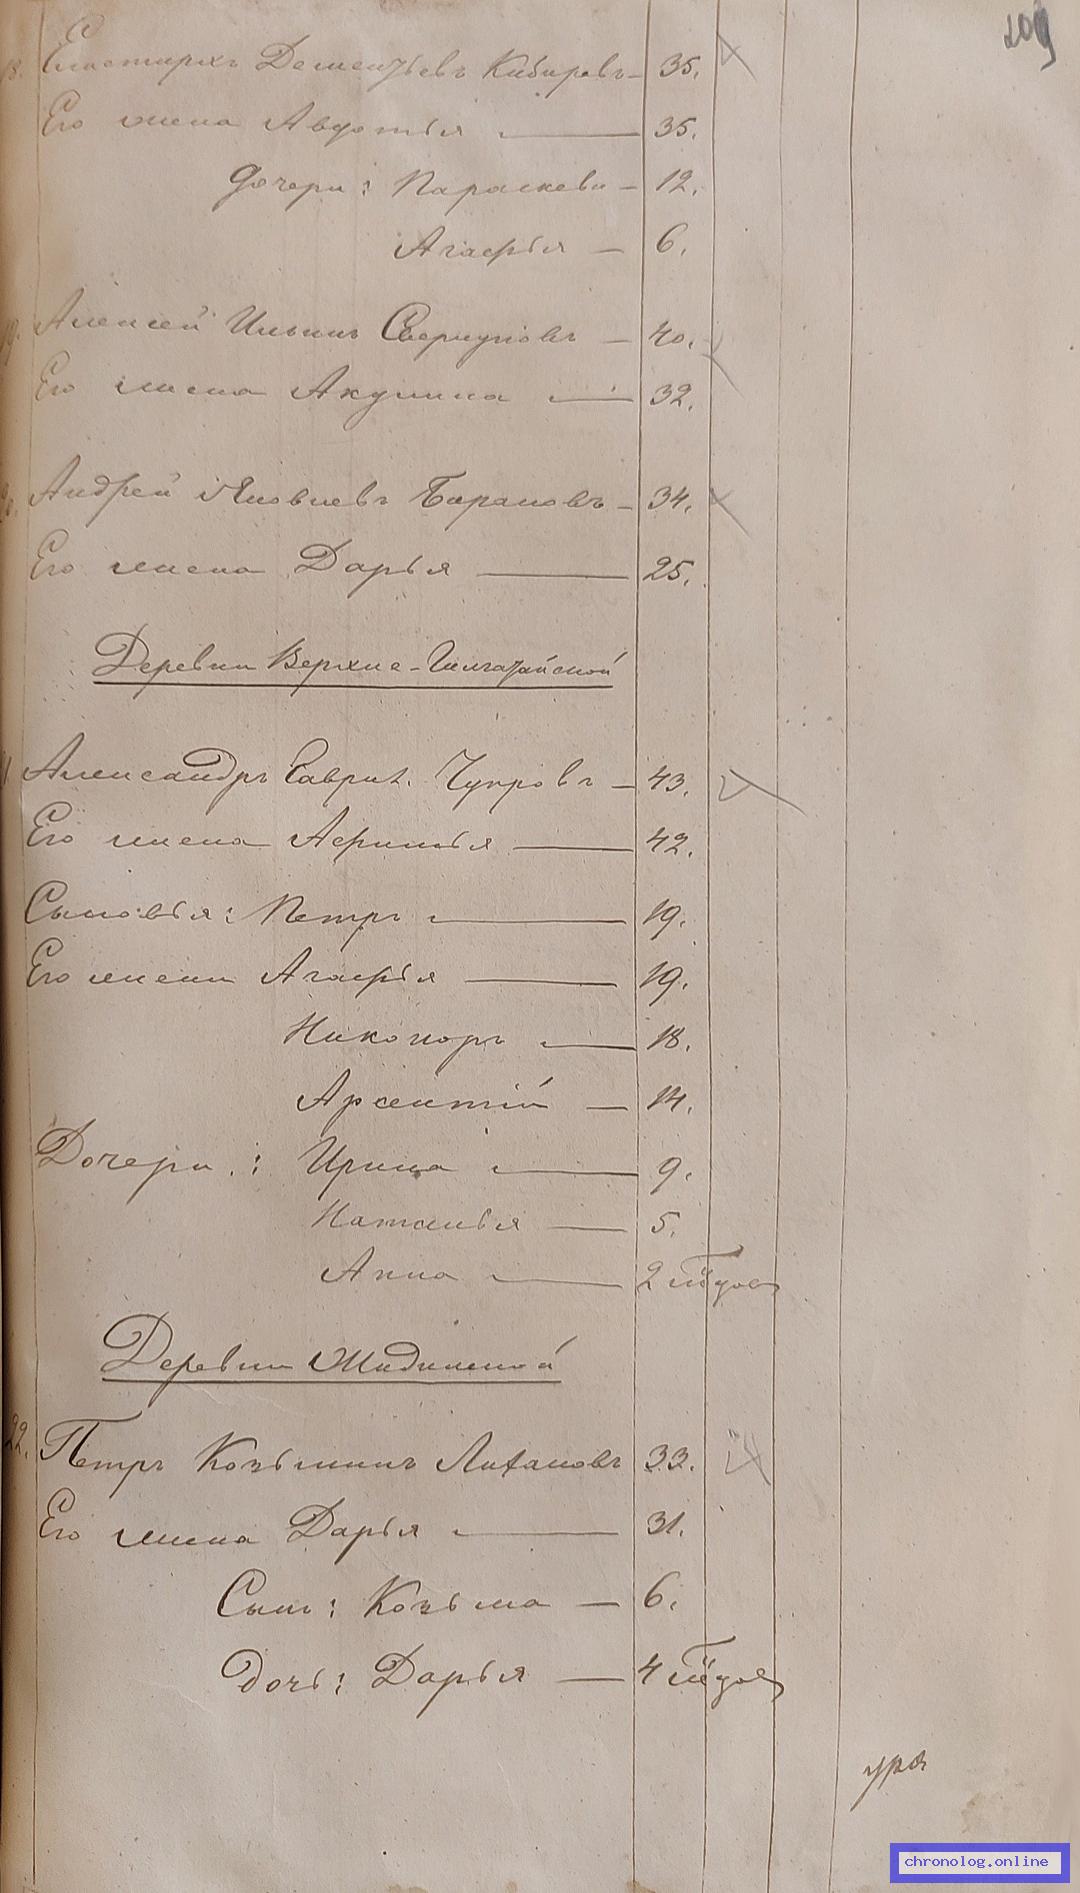 209
18. Елистархъ Дементьевъ Кибиревъ — 35.
Его жена Авдотья — 35.
Дочери: Параскева — 12.
Агафья — 6.
19. Алексей Ильинъ Свернуновъ — 40.
Его жена Акулина — 32.
Андрей Яковлевъ Барановъ — 34.
Его жена Дарья — 25.
Деревни Верхне-
Александръ Гаврил. Чупровъ — 43.
Его жена Афимья — 42.
Сыновья: Петръ — 19.
Его жена Агафья — 19.
Никоноръ — 18.
Арсентій — 14.
Дочери: Ирина — 9.
Наталья — 5.
Анна — 2
Деревни Жидинской
22. Петръ Козьминъ Лихановъ 33.
Его жена Дарья — 31.
Сынъ: Козьма — 6.
Дочь: Дарья — 4
chronolog.online